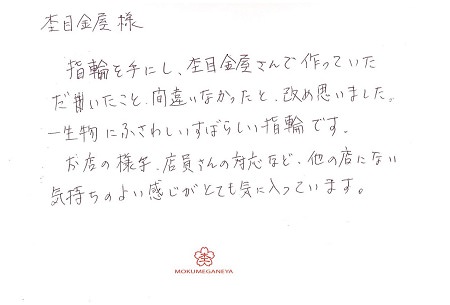 杢目金屋 様
指輪を手にし、杢目金屋さんで作っていた
だいたこと、間違いなかったと、改め思いました。
一生物にふさわしいすばらしい指輪です。
お店の様子、店員さんの対応など、他の店にない
気持ちのよい感じがとても気に入っています。
MOKUMEGANEYA